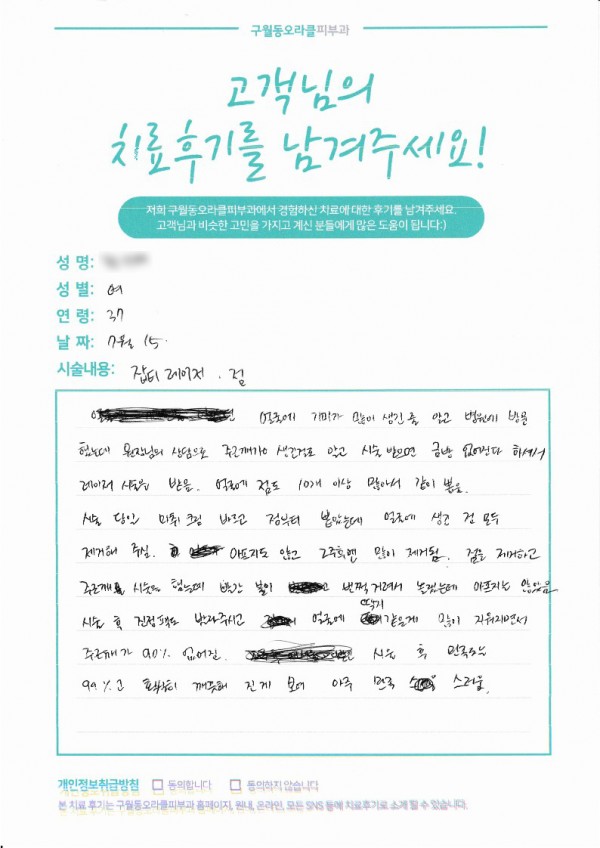 구월동오라클피부과
고객님의
치료후기를 남겨주세요!
저희 구월동오라클피부과에서 경험하신 치료에 대한 후기를 남겨주세요.
고객님과 비슷한 고민을 가지고 계신 분들에게 많은 도움이 됩니다:)
성 명:
성 별: 여
연 령: 37
날 짜: 7월 15.
시술내용: 잡티 레이저 . 점
얼굴에 기미가 많이 생긴 줄 알고 병원에 방문
했는데 원장님의 상담으로 주근깨가 생긴걸로 알고 시술 받으면 금방 없어진다 하셔서
레이저 시술을 받음. 얼굴에 점도 10개 이상 많아서 같이 뽑음.
시술 당일 마취 크림 바르고 점부터 뽑았는데 얼굴에 생긴 점 모두
제거해 주심. 아프지도 않고 2주후엔 많이 제거됨. 점을 제거하고
주근깨 시술도 했는데 빨간 불이 번쩍 거려서 놀랬는데 아프지는 않았음
시술 후 진정팩도 발라주시고 얼굴에 딱지 같은게 많이 지워지면서
주근깨가 90% 없어짐. 시술 후 만족도는
99%고 피부톤이 깨끗해 진게 보여 아주 만족 스러움.
개인정보취급방침 □ 동의합니다 □ 동의하지 않습니다
본 치료 후기는 구월동오라클피부과 홈페이지, 원내, 온라인, 모든 SNS 등에 치료후기로 소개 될 수 있습니다.